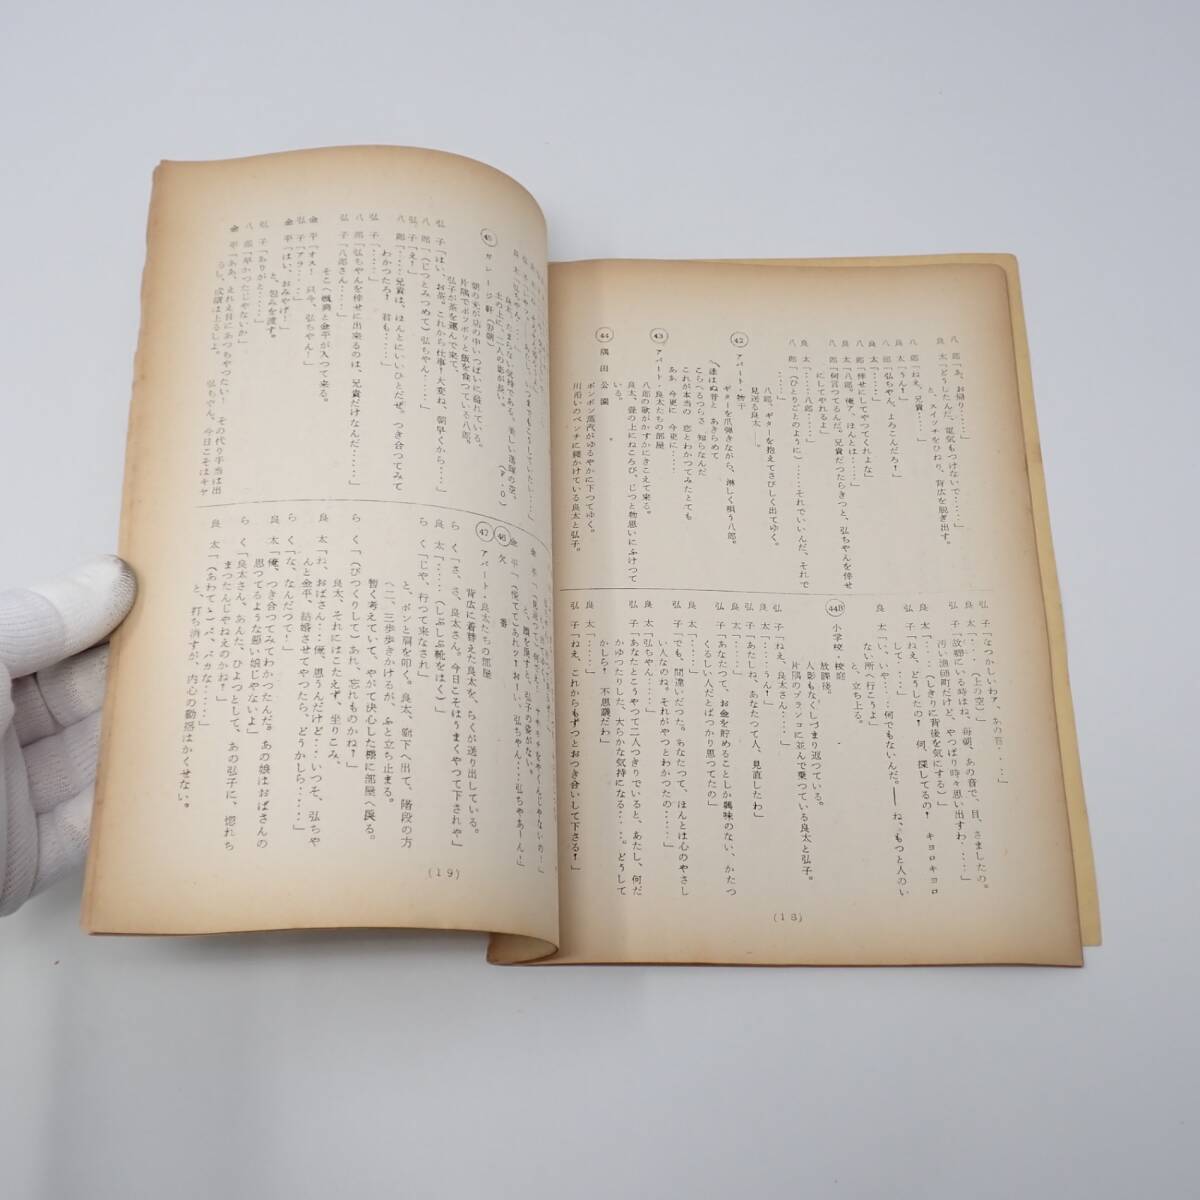 八郎「あ、お帰り‥‥‥」
良太「どうしたんだ、電気もつけないで‥‥‥」
と、スイッチをひねり、背広を脱ぎ出す。
八郎「ねえ、兄貴‥‥‥」
良太「うん?」
八郎「弘ちゃん、よろこんだろ!」
良太「‥‥‥」
八郎「倖せにしてやってくれよな」
良太「八郎。俺ア、ほんとは‥‥‥」
八郎「何言ってるんだ。兄貴だったらきっと、弘ちゃんを倖せ
にしてやれるよ」
良太「‥‥‥八郎‥‥‥」
八郎「(ひとりごとのように)‥‥‥それでいいんだ、それで
八郎、ギターを抱えてさびしく出てゆく。
見送る良太――。
㊷ アパート・物干
ギターを爪弾きながら、淋しく唄う八郎。
逢はぬ昔と あきらめて
こらへるつらさ 知らなんだ
これが本当の 恋とわかってみたとても
ああ 今更に 今更に‥‥
㊸ アパート・良太たちの部屋
八郎の歌がかすかにきこえて来る。
良太、畳の上にねころび、じっと物思いにふけって
いる。
㊹ 隅田公園
ポンポン蒸汽がゆるやかに下ってゆく。
川沿いのベンチに腰かけている良太と弘子。
弘子「なつかしいわア、あの音‥‥‥」
良太「‥‥‥(上の空)」
弘子「故郷にいる時はね、毎朝、あの音で、目、さましたの。
汚い漁師町だけど、やっぱり時々思い出すわ‥‥‥」
良太「‥‥‥(しきりに背後を気にする)」
弘子「ねえ、どうしたの! 何、探してるの! キョロキョロ
して‥‥‥」
良太「い、いや‥‥‥何でもないんだ。――ね、もっと人のい
ない所へ行こうよ」
と、立ち上る。
44B 小学校・校庭
放課後。
人影もなくしづまり返っている。
片隅のブランコに並んで乗っている良太と弘子。
弘子「ねえ、良太さん‥‥‥」
良太「‥‥‥うん?」
弘子「あたしね、あなたって人、見直したわ」
良太「‥‥‥」
弘子「あなたって、お金を貯めることしか興味のない、かたっ
くるしい人だとばっかり思ってたの」
良太「‥‥‥」
弘子「でも、間違いだった。あなたって、ほんとは心のやさし
い人なのね。それがやっとわかったの‥‥‥」
良太「弘ちゃん‥‥‥」
弘子「あなたとこうやって二人っきりでいると、あたし、何だ
かゆったりした、大らかな気持になる‥‥‥。どうして
かしら! 不思議だわ」
良太「‥‥‥」
弘子「ねえ、これからもずっとおつき合いして下さる!」
(18)
良太「弘ちゃん‥‥‥」
良太、たまらない気持である。美しい落暉の空。
土の上に、二人の影が長い。 (F・O)
㊺ ガレージ軒(翌朝)
朝の光が店の中いっぱいに溢れている。
片隅でポソポソと飯を食っている八郎。
弘子が茶を運んで来て、
弘子「はい、お茶。これから仕事!大変ね、朝早くから‥‥」
八郎「(じっとみつめて)弘ちゃん‥‥‥」
弘子「え!」
八郎「‥‥‥兄貴は、ほんとにいいひとだぜ。つき合ってみて
わかったろ! 君も‥‥‥」
弘子「‥‥‥」
八郎「弘ちゃんを倖せに出来るのは、兄貴だけなんだ‥‥‥」
弘子「八郎さん‥‥‥」
そこへ颯爽と金平が入って来る。
金平「オス! 只今、弘ちゃん!」
弘子「アラ‥‥‥」
金平「はい、おみやげ!」
と、包みを渡す。
弘子「ありがと‥‥‥」
八郎「早かったじゃないか」
金平「ああ、えれえ目にあっちゃったい! その代り手当は出
るし、成績は上るしよ。 弘ちゃん、今日こそはキャ
金平「慌てて)あれッ!おーい、弘ちゃん‥‥弘ちゃあーん!」
と、顔を戻すと、弘子の姿がない。
㊻ 欠番
㊼ アパート・良太たちの部屋
背広に着替えた良太を、らくが送り出している。
らく「さ、さ、良太さん。今日こそはうまくやって下されや」
良太「‥‥‥(しぶしぶ靴をはく)」
らく「じゃ、行って来なされ」
と、ポンと肩を叩く。良太、廊下へ出て、階段の方
へ二、三歩歩きかけるが、ふと立ち止まる。
暫く考えていて、やがて決心した様に部屋へ戻る。
らく「(びっくりして)あれ、忘れものかね!」
良太、それにはこたえず、坐りこみ、
良太「ね、おばさん‥‥俺、思うんだけど‥‥いっそ、弘ちゃ
んと金平、結婚させてやったら、どうかしら‥‥‥」
らく「な、なんだって!」
良太「俺、つき合ってみてわかったんだ。あの娘はおばさんの
思ってるような悪い娘じゃないよ」
らく「良太さん、あんた、ひょっとして、あの弘子に、惚れち
まったんじゃねえのかね!」
良太「(あわてて)バ、バカな‥‥‥」
と、打ち消すが、内心の動揺はかくせない。
(19)